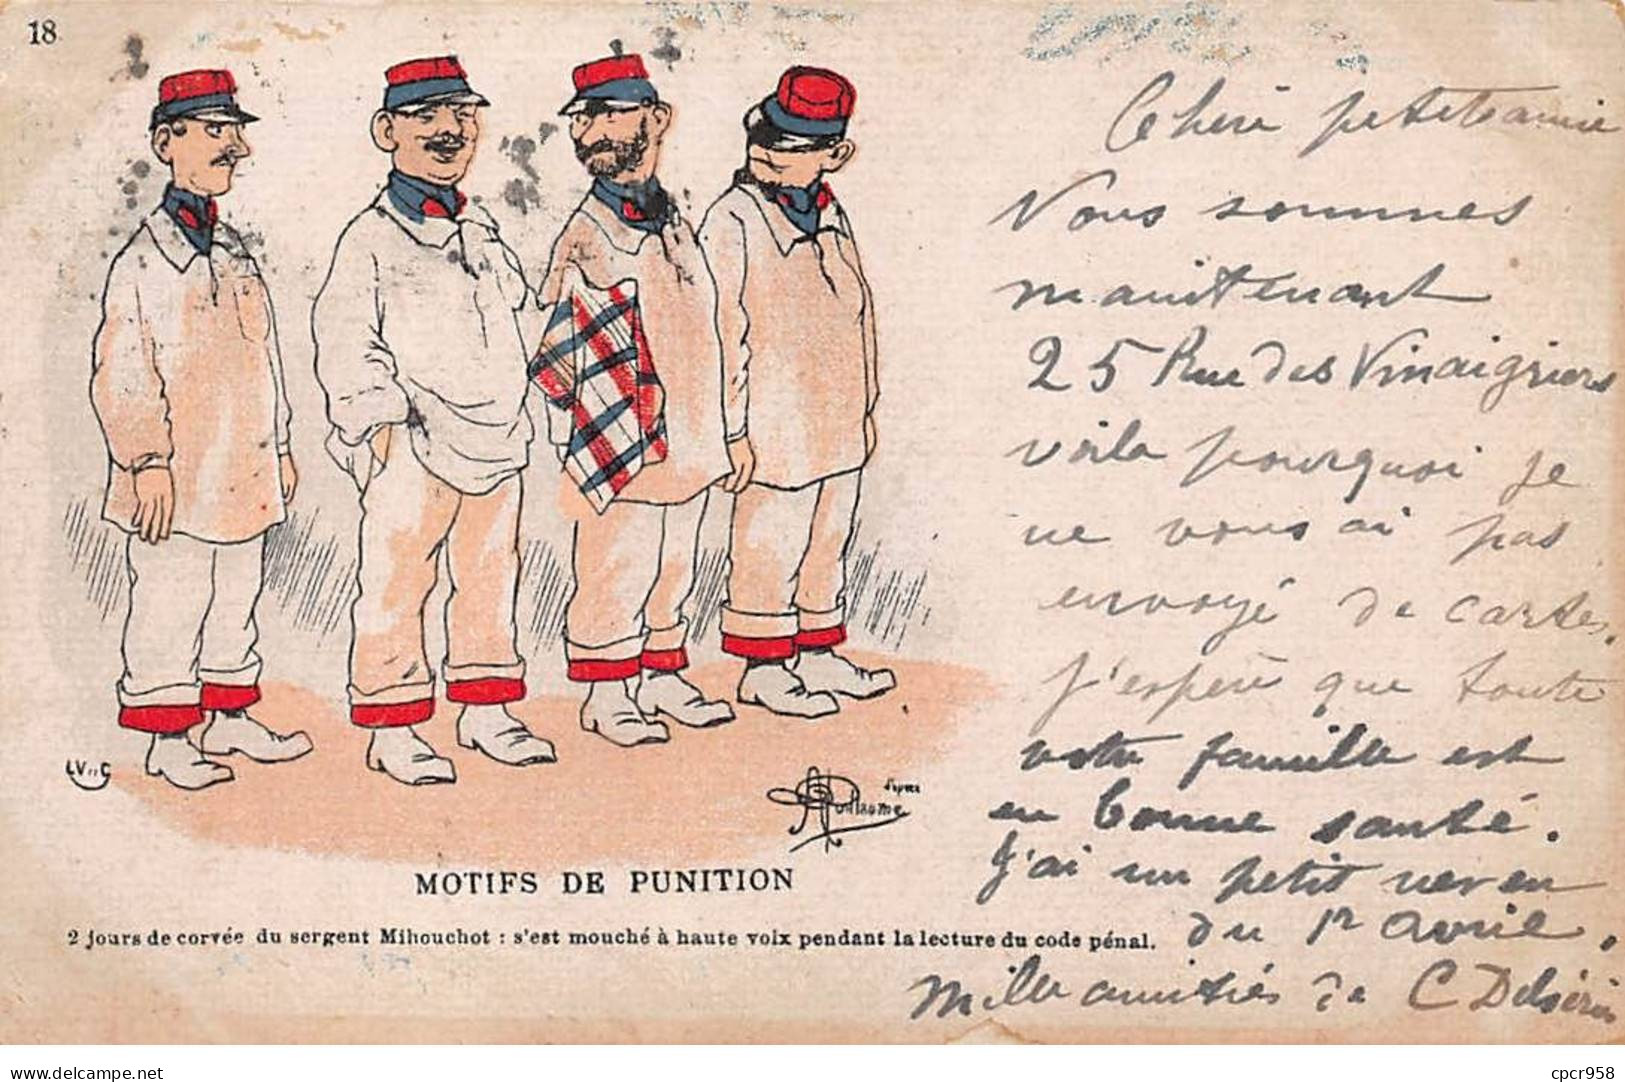 18
Chère petite amie
Nous sommes
maintenant
25 Rue des Vinaigriers
voila pourquoi je
ne vous ai pas
envoyé de cartes.
J'espère que toute
votre famille est
en bonne santé.
J'ai un petit neveu
du 1er Avril.
Mille amitiés de C
LV & C
A Guillaume
MOTIFS DE PUNITION
2 jours de corvée du sergent Mihouchot : s'est mouché à haute voix pendant la lecture du code pénal.
delcampe.net
cpcr958